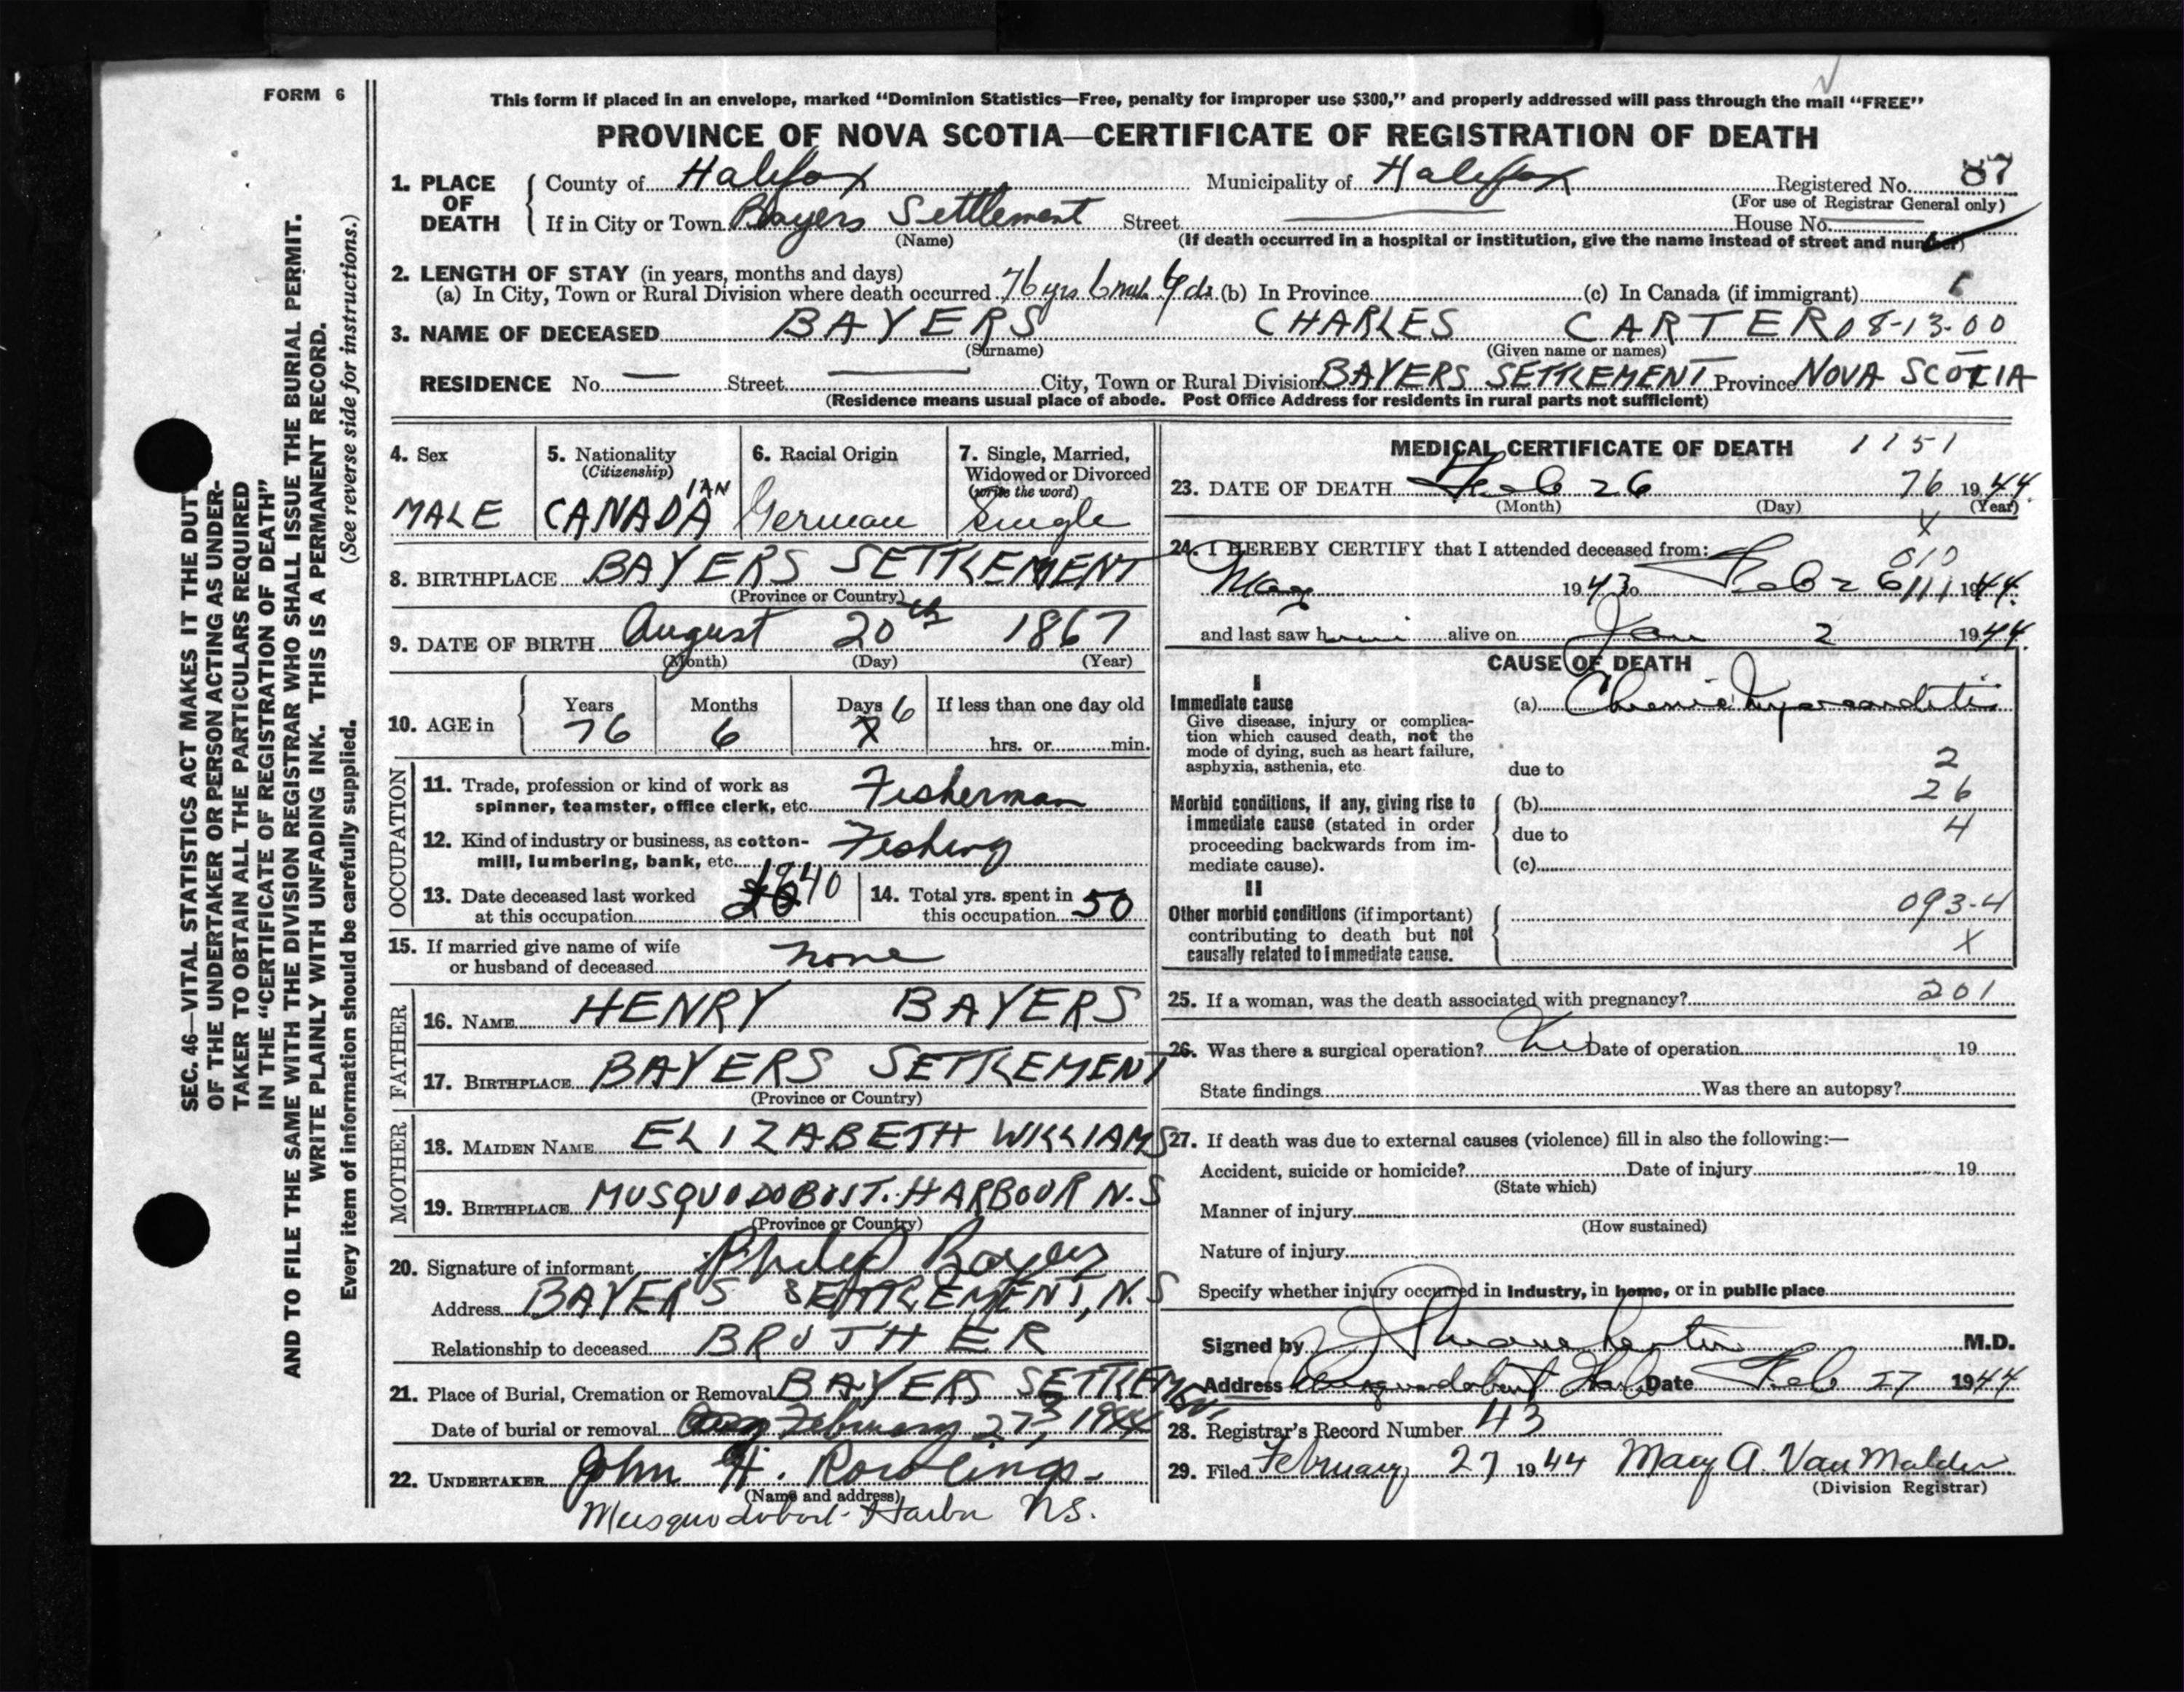 FORM 6
This form if placed in an envelope, marked “Dominion Statistics—Free, penalty for improper use $300,” and properly addressed will pass through the mail “FREE”
PROVINCE OF NOVA SCOTIA—CERTIFICATE OF REGISTRATION OF DEATH
1. PLACE OF DEATH County of Halifax Municipality of Halifax Registered No. 87
(For use of Registrar General only)
If in City or Town Bayers Settlement Street House No.
(Name) (If death occurred in a hospital or institution, give the name instead of street and number)
2. LENGTH OF STAY (in years, months and days)
(a) In City, Town or Rural Division where death occurred 76 yrs 6 ds. (b) In Province (c) In Canada (if immigrant)
3. NAME OF DECEASED BAYERS CHARLES CARTER 08-13-00
(Surname) (Given name or names)
RESIDENCE No. — Street — City, Town or Rural Division BAYERS SETTLEMENT Province NOVA SCOTIA
(Residence means usual place of abode. Post Office Address for residents in rural parts not sufficient)
4. Sex MALE
5. Nationality (Citizenship) CANADIAN
6. Racial Origin German
7. Single, Married, Widowed or Divorced (write the word) Single
8. BIRTHPLACE BAYERS SETTLEMENT
(Province or Country)
9. DATE OF BIRTH August 20th 1867
(Month) (Day) (Year)
10. AGE in Years 76 Months 6 Days 6 If less than one day old
hrs. or min.
OCCUPATION
11. Trade, profession or kind of work as
spinner, teamster, office clerk, etc. Fisherman
12. Kind of industry or business, as cotton-
mill, lumbering, bank, etc. Fishing
13. Date deceased last worked
at this occupation 1940
14. Total yrs. spent in
this occupation 50
15. If married give name of wife
or husband of deceased none
FATHER
16. NAME HENRY BAYERS
17. BIRTHPLACE BAYERS SETTLEMENT
(Province or Country)
MOTHER
18. MAIDEN NAME ELIZABETH WILLIAMS
19. BIRTHPLACE MUSQUODOBOIT. HARBOUR N.S
(Province or Country)
20. Signature of informant Philip Bayers
Address BAYERS SETTLEMENT, N.S
Relationship to deceased BROTHER
21. Place of Burial, Cremation or Removal BAYERS SETTLEMENT
Date of burial or removal February 27, 1944
22. UNDERTAKER John H. Rowlings
(Name and address)
Musquodoboit Harbor N.S.
MEDICAL CERTIFICATE OF DEATH 1151
23. DATE OF DEATH Feb 26 76 1944
(Month) (Day) (Year)
X
24. I HEREBY CERTIFY that I attended deceased from:
010
May 1943 to Feb 26 111 1944.
and last saw him alive on Jan 2 1944.
CAUSE OF DEATH
I
Immediate cause (a) Chronic Myocarditis
Give disease, injury or complica-
tion which caused death, not the
mode of dying, such as heart failure,
asphyxia, asthenia, etc. due to 2
Morbid conditions, if any, giving rise to (b) 26
immediate cause (stated in order due to 4
proceeding backwards from im-
mediate cause). (c)
II
Other morbid conditions (if important) 093-4
contributing to death but not X
causally related to immediate cause.
25. If a woman, was the death associated with pregnancy? 201
26. Was there a surgical operation? Date of operation 19
State findings Was there an autopsy?
27. If death was due to external causes (violence) fill in also the following:—
Accident, suicide or homicide? Date of injury 19
(State which)
Manner of injury
(How sustained)
Nature of injury
Specify whether injury occurred in Industry, in home, or in public place
Signed by M.D.
Address Musquodoboit Harb Date Feb 27 1944
28. Registrar's Record Number 43
29. Filed February 27 1944 Mary A. Van Malder
(Division Registrar)
SEC. 46—VITAL STATISTICS ACT MAKES IT THE DUTY
OF THE UNDERTAKER OR PERSON ACTING AS UNDER-
TAKER TO OBTAIN ALL THE PARTICULARS REQUIRED
IN THE “CERTIFICATE OF REGISTRATION OF DEATH”
AND TO FILE THE SAME WITH THE DIVISION REGISTRAR WHO SHALL ISSUE THE BURIAL PERMIT.
WRITE PLAINLY WITH UNFADING INK. THIS IS A PERMANENT RECORD.
Every item of information should be carefully supplied. (See reverse side for instructions.)